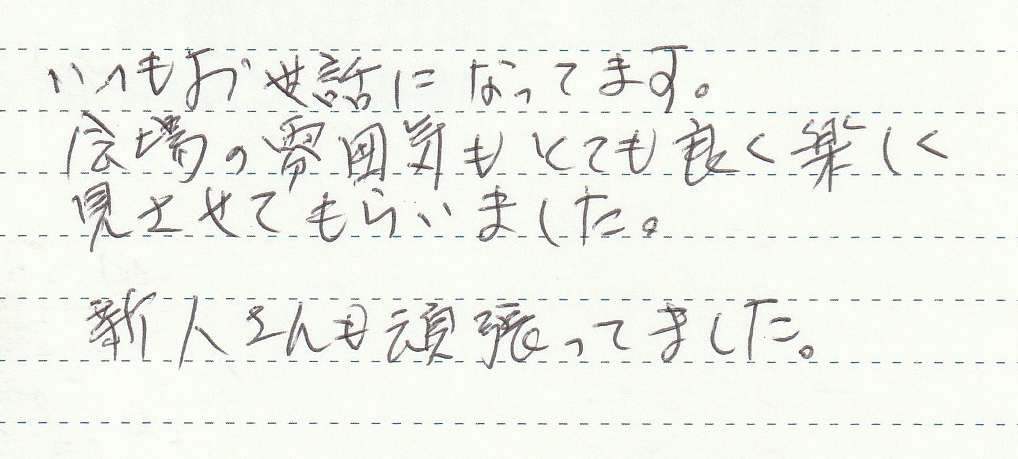 いつもお世話になってます。
会場の雰囲気もとても良く楽しく
見させてもらいました。
新人さんも頑張ってました。